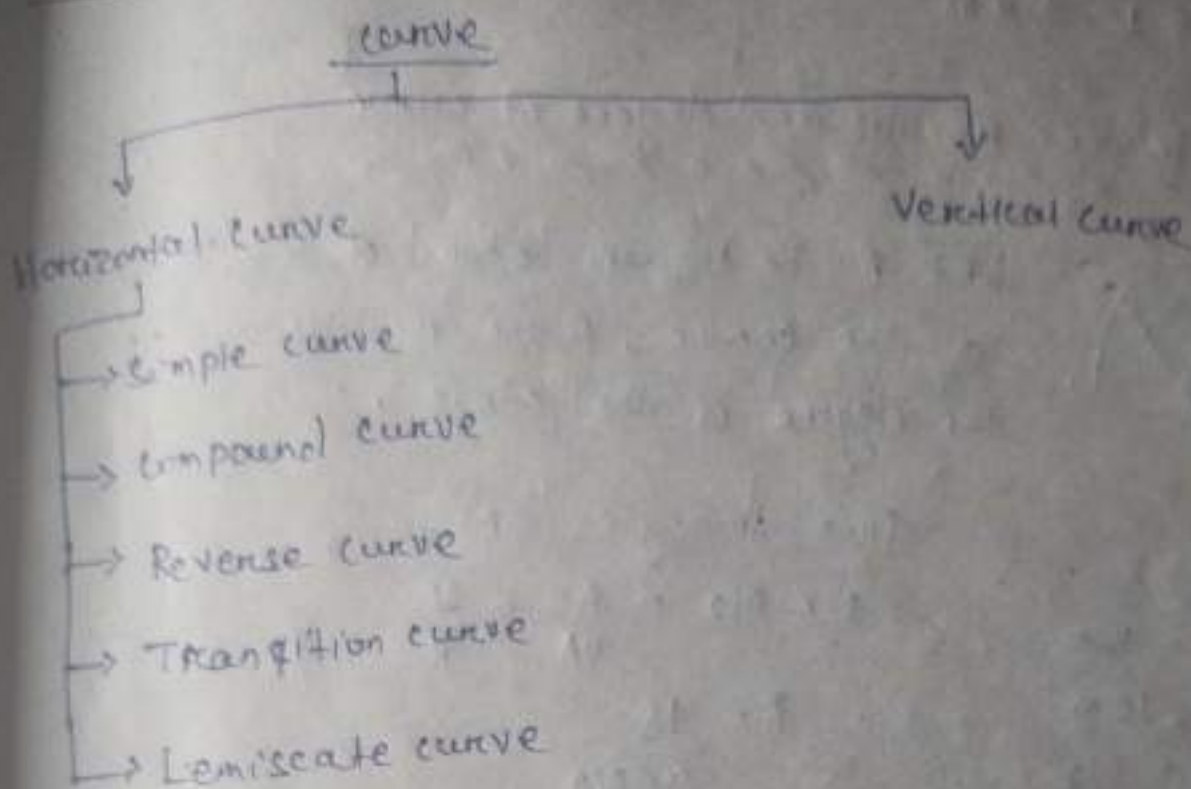 curve
Horizontal curve
Vertical curve
Simple curve
Compound curve
Reverse curve
Transition curve
Lemiscate curve